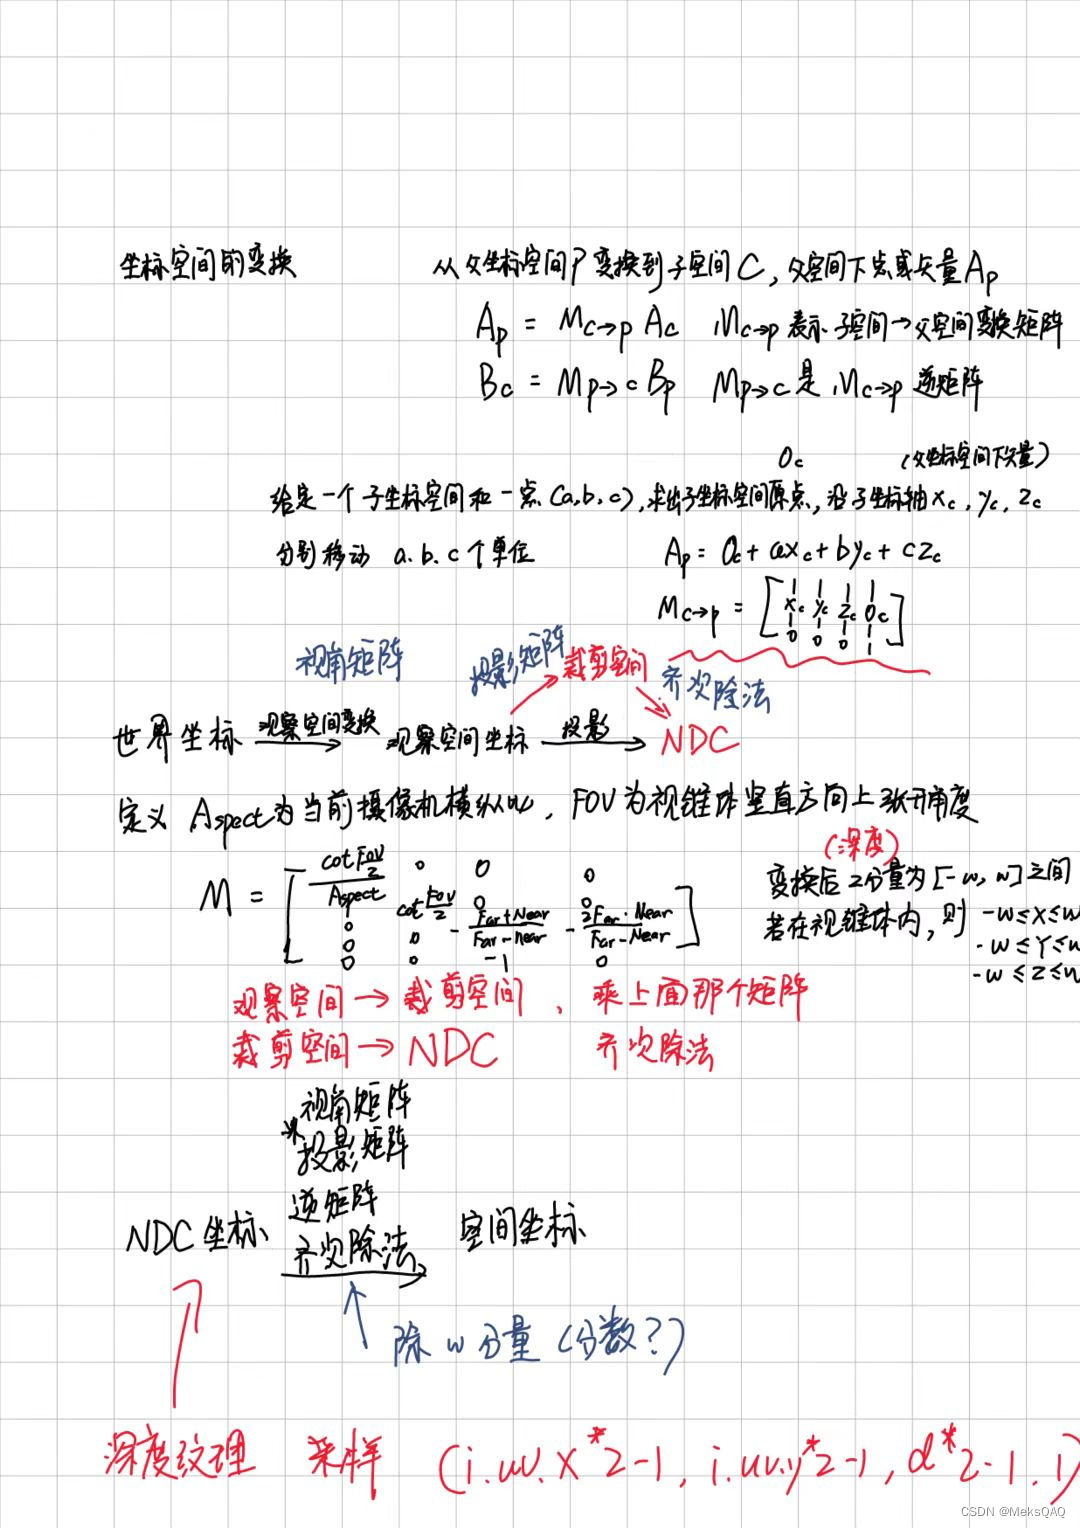 坐标空间的变换 从父坐标空间P变换到子空间C，父空间下点或矢量Ap
Ap = Mc→p Ac Mc→p 表示 子空间→父空间变换矩阵
Bc = Mp→c Bp Mp→c 是 Mc→p 逆矩阵
Oc （父坐标空间下矢量）
给定一个子坐标空间和一点(a,b,c),求出子坐标空间原点，沿子坐标轴xc, yc, zc
分别移动 a.b.c个单位 Ap = Oc + axc + byc + czc
Mc→p = [ | | | |
xc yc zc Oc
| | | |
0 0 0 1 ]
视角矩阵 投影矩阵 裁剪空间 齐次除法
世界坐标 观察空间变换 观察空间坐标 投影 NDC
定义 Aspect为当前摄像机横纵比，FOV为视锥体竖直方向上张开角度
(深度)
M = [ cot FOV/2 / Aspect 0 0 0
0 cot FOV/2 0 0
0 0 - Far+Near / Far-near - 2Far·Near / Far-Near
0 0 -1 0 ]
变换后 z分量为[-w, w]之间
若在视锥体内，则 -w≤X≤w
-w≤Y≤w
-w≤Z≤w
观察空间→裁剪空间，乘上面那个矩阵
裁剪空间→NDC 齐次除法
视角矩阵
*投影矩阵
逆矩阵
NDC坐标 齐次除法 空间坐标
除w分量（分数？）
深度纹理 采样 (i.uv.x*2-1, i.uv.y*2-1, d*2-1, 1)
CSDN @MeksQAQ